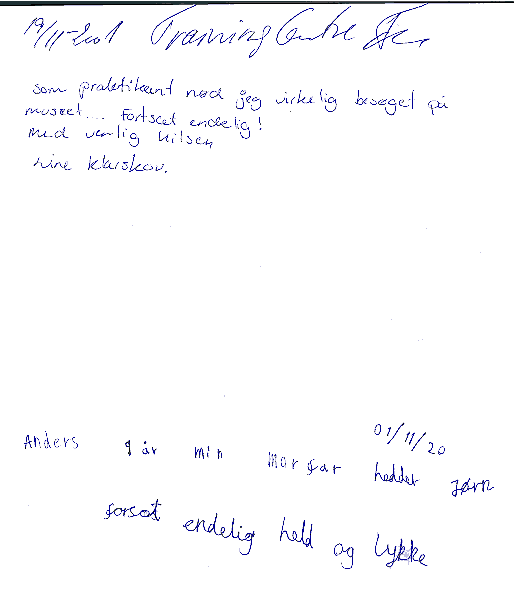 19/11-2001 Training Centre
som praktikant nød jeg virkelig besøget på
museet.... Fortsæt endelig!
Med venlig hilsen
Klarskov.
01/11/20
Anders 9 år min morfar hedder Jørn
forsat endelig held og lykke